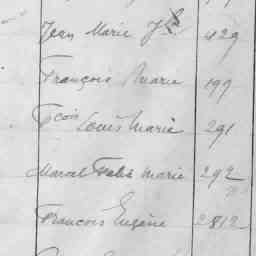 Jean Marie 429
François Marie 199
Fçois Louis Marie 291
Marcel Marie 292
François Eugène 2812